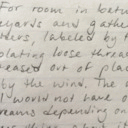 For room in betw
eyards and gather
ters, labeled by t
olating loose threads
eased out of place
by the wind. The
would not have o
reams depending on